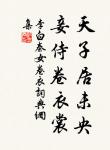 天子居未央
妾侍卷衣裳
李白秦女卷衣詞典網
集